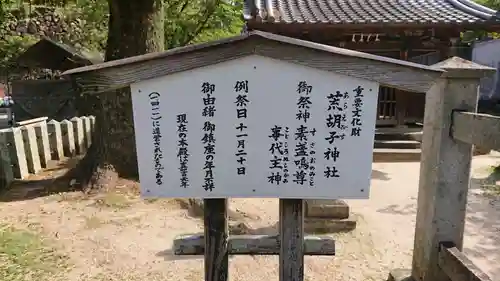 重要文化財
荒胡子神社
あらえびす
御祭神 素盞嗚尊
すさのおのみこと
事代主神
ことしろぬしのかみ
例祭日 十一月二十日
御由緒 御鎮座の年月
現在の本殿は嘉吉元年
(一四四一)に造営されたものである